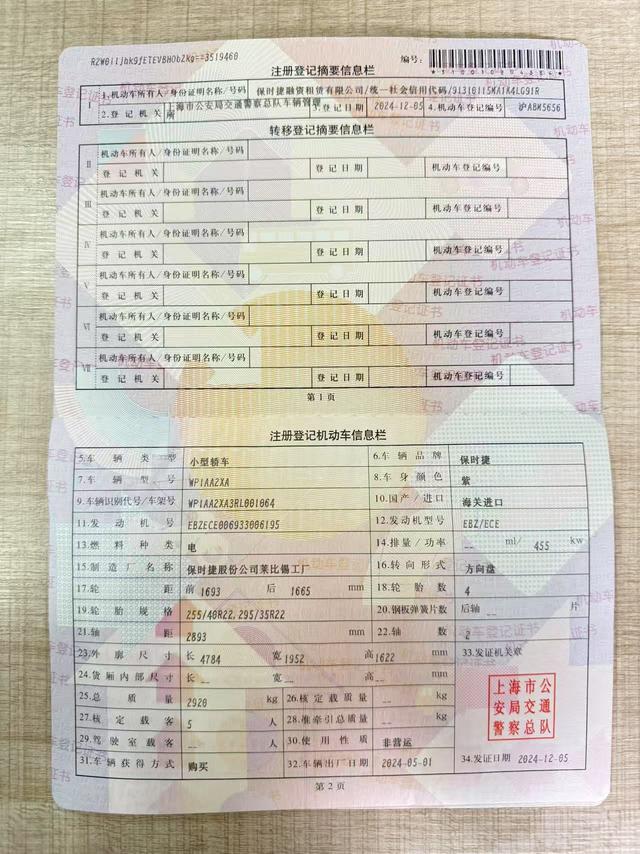 注册登记摘要信息栏
编号:
Ⅰ 1.机动车所有人/身份证明名称/号码 保时捷融资租赁有限公司/统一社会信用代码/91310115MA1K4LG91R
2.登记机关 上海市公安局交通警察总队车辆管理所 3.登记日期 2024-12-05 4.机动车登记编号 沪ABW5656
转移登记摘要信息栏
Ⅱ 机动车所有人/身份证明名称/号码
登记机关 登记日期 机动车登记编号
Ⅲ 机动车所有人/身份证明名称/号码
登记机关 登记日期 机动车登记编号
Ⅳ 机动车所有人/身份证明名称/号码
登记机关 登记日期 机动车登记编号
Ⅴ 机动车所有人/身份证明名称/号码
登记机关 登记日期 机动车登记编号
Ⅵ 机动车所有人/身份证明名称/号码
登记机关 登记日期 机动车登记编号
Ⅶ 机动车所有人/身份证明名称/号码
登记机关 登记日期 机动车登记编号
第1页
注册登记机动车信息栏
5.车辆类型 小型轿车 6.车辆品牌 保时捷
7.车辆型号 WP1AA2XA 8.车身颜色 紫
9.车辆识别代号/车架号 WP1AA2XA3RL001064 10.国产/进口 海关进口
11.发动机号 EBZECE006933006195 12.发动机型号 EBZ/ECE
13.燃料种类 电 14.排量/功率 -- ml/ 455 kw
15.制造厂名称 保时捷股份公司莱比锡工厂 16.转向形式 方向盘
17.轮距 前 1693 后 1665 mm 18.轮胎数 4
19.轮胎规格 255/40R22,295/35R22 20.钢板弹簧片数 后轴 -- 片
21.轴距 2893 mm 22.轴数 2
23.外廓尺寸 长 4784 宽 1952 高 1622 mm 33.发证机关章
24.货厢内部尺寸 长 -- 宽 -- 高 -- mm
25.总质量 2920 kg 26.核定载质量 -- kg
27.核定载客 5 人 28.准牵引总质量 -- kg
29.驾驶室载客 -- 人 30.使用性质 非营运
31.车辆获得方式 购买 32.车辆出厂日期 2024-05-01 34.发证日期 2024-12-05
上海市公
安局交通
警察总队
第2页